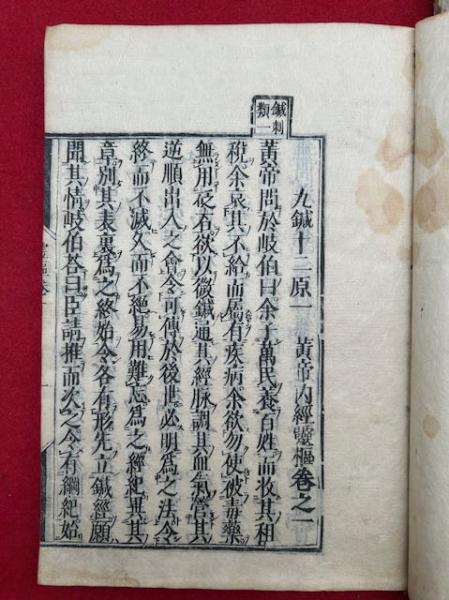 鍼刺
類一
九鍼十二原一　黃帝內經靈樞卷之一
黃帝問於岐伯曰余子萬民養百姓而收其租
稅余哀其不給而屬有疾病余欲勿使被毒藥
無用砭石欲以微鍼通其經脉調其血氣營其
逆順出入之會令可傳於後世必明爲之法令
終而不滅久而不絕易用難忘爲之經紀異其
章別其表裏爲之終始令各有形先立鍼經願
聞其情岐伯荅曰臣請推而次之令有綱紀始